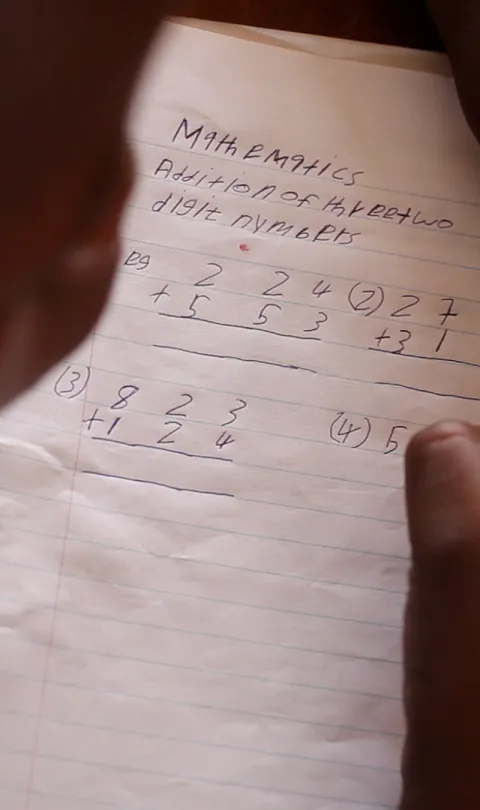 Mathematics
Addition of three two
digit numbers
eg 2 2 4 (2) 2 7
+ 5 5 3 +3 1
(3) 8 2 3
+1 2 4 (4) 5